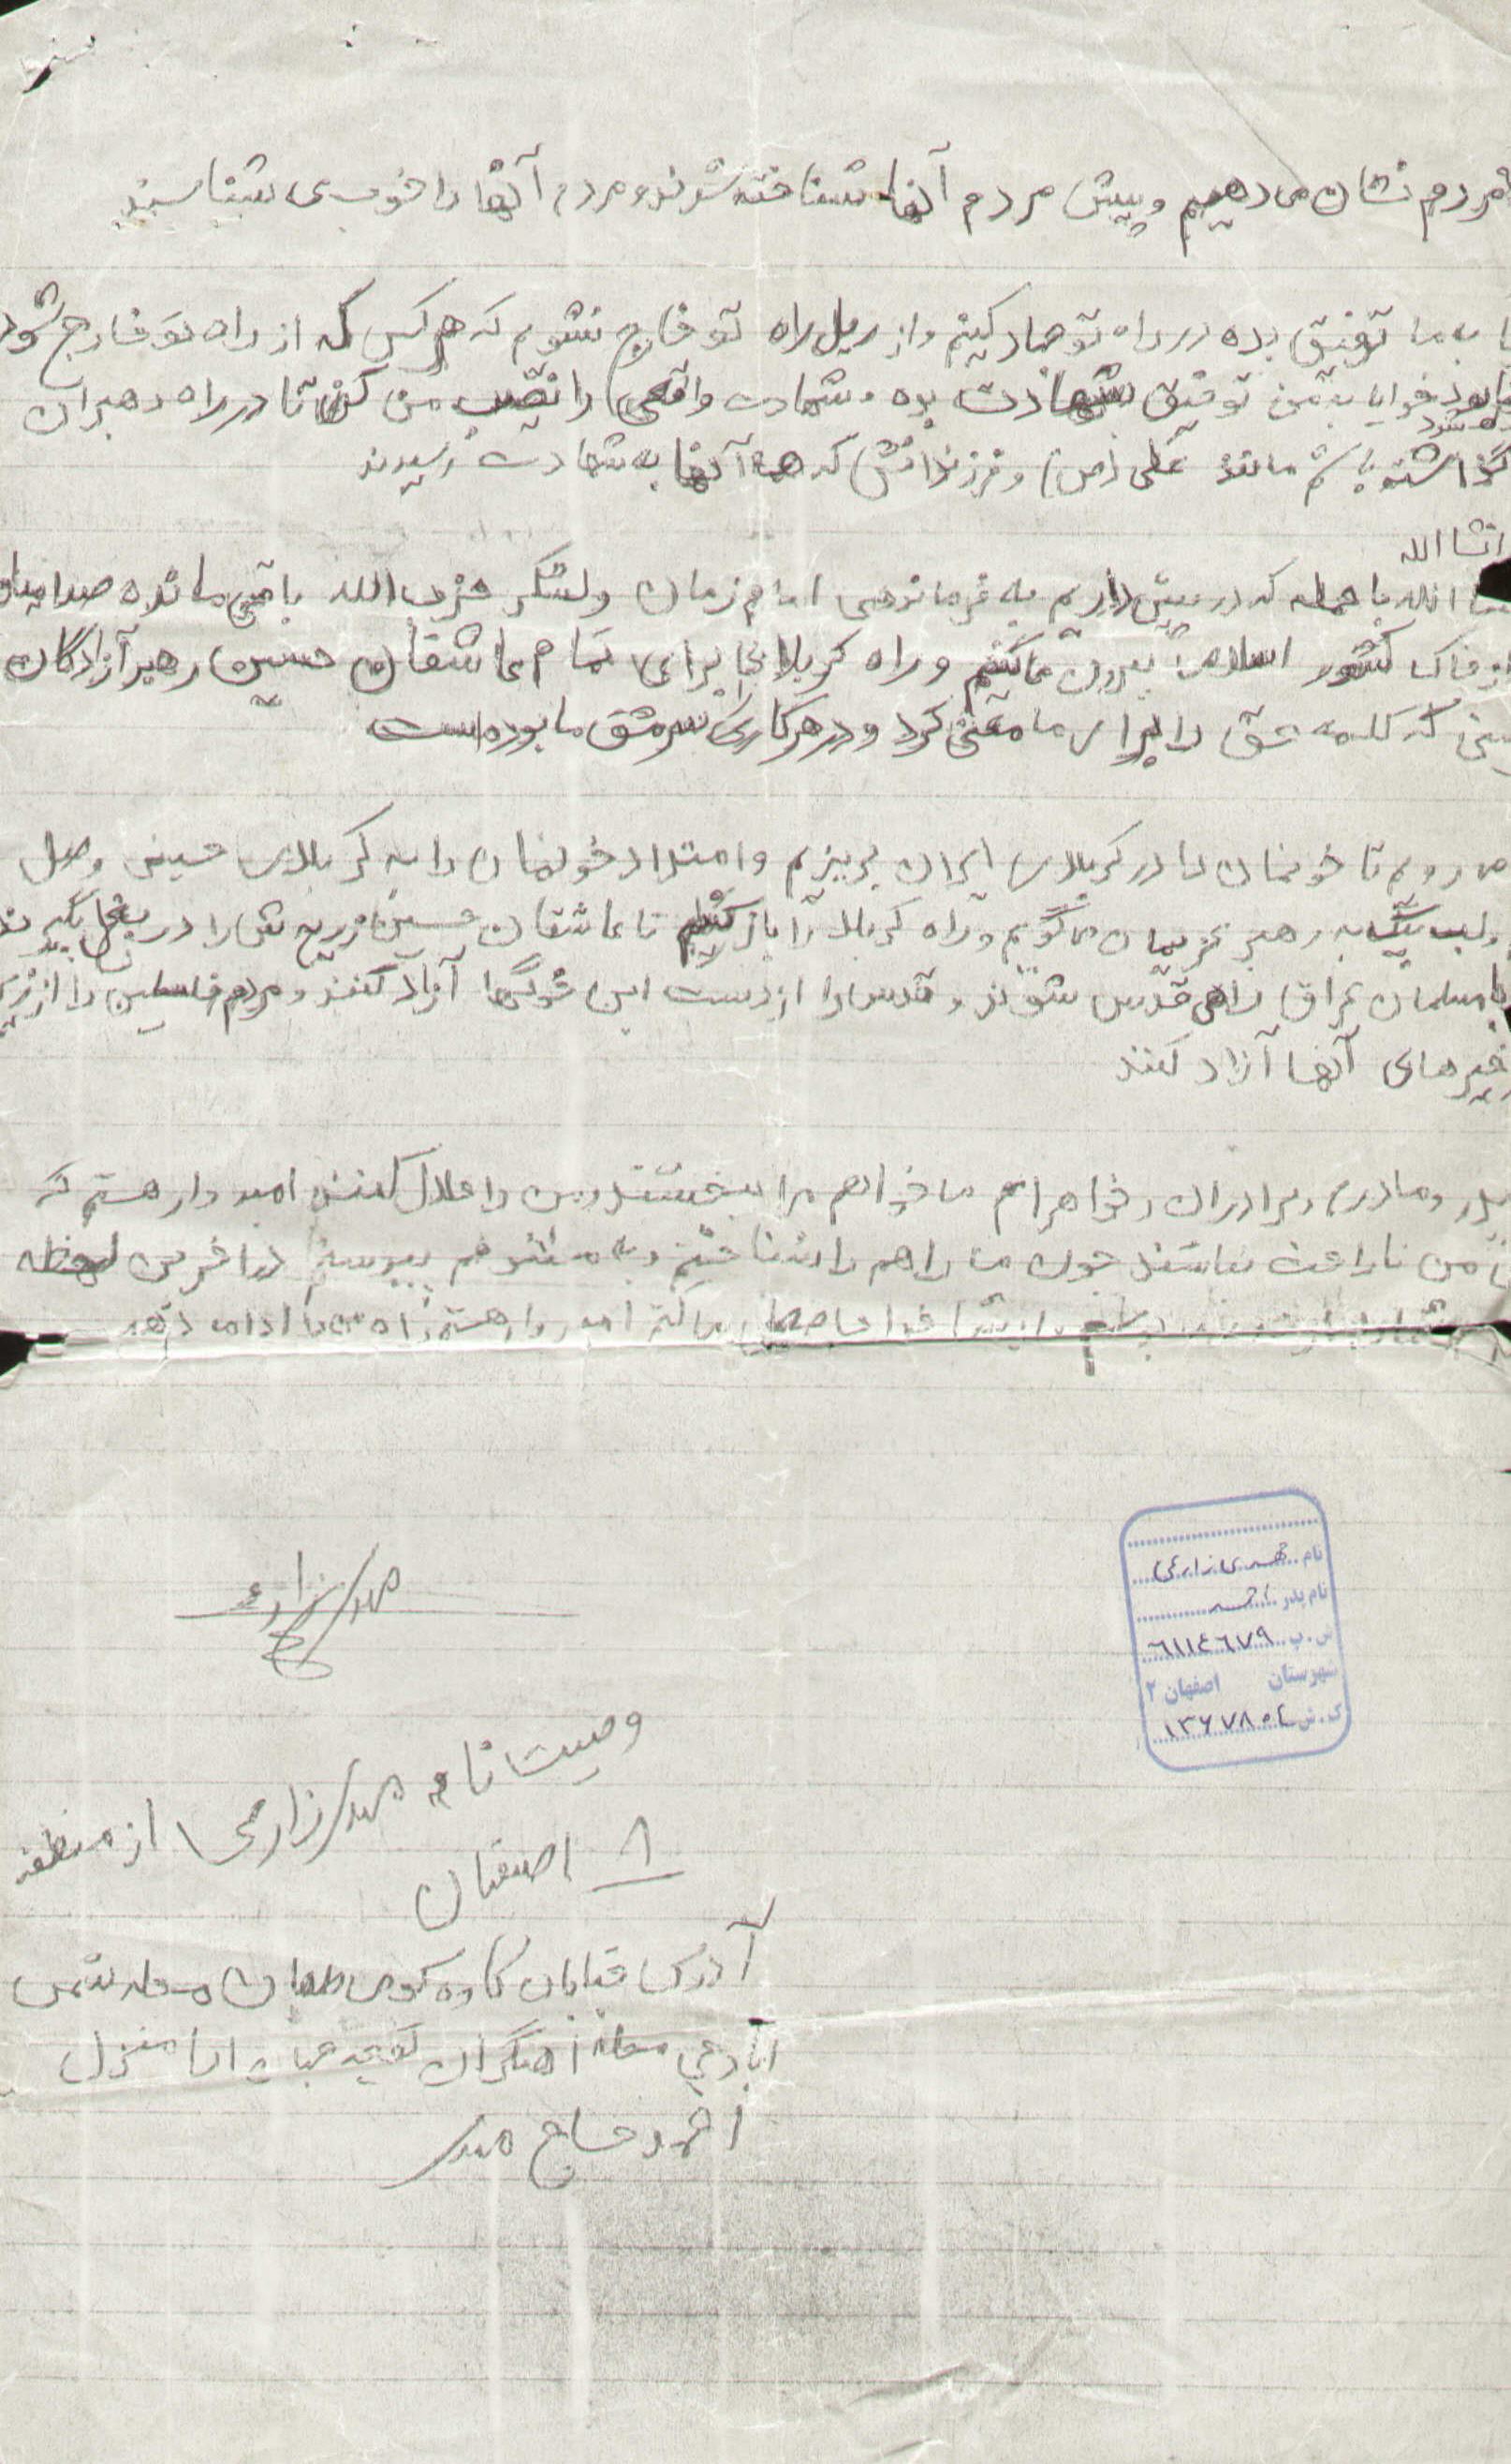 مردم نشان می دهیم و پیش مردم آنها شناخته شوند و مردم آنها را خوب می شناسند
به ما توفیق بده در راه تو جهاد کنیم و از ریل راه تو خارج نشویم که هر کس که از راه تو خارج شود
خدایا به من توفیق شهادت بده و شهادت واقعی را نصیب من کن تا در راه رهبران
باشم مانند علی (ص) و فرزندانش که همه آنها به شهادت رسیدند
انشاالله
با حمله که در پیش داریم به فرماندهی امام زمان و لشگر حزب الله باقی مانده صدامیان
از خاک کشور اسلامی بیرون می کنیم و راه کربلا را برای تمام عاشقان حسین رهبر آزادگان
که کلمه عشق را برای ما معنی کرد و در هر کاری سرمشق ما بوده است
می رویم تا خونمان را در کربلای ایران بریزیم و امتداد خونمان را به کربلای حسینی وصل
به رهبر عزیزمان می گویم و راه کربلا را باز کنیم تا عاشقان حسین ضریح ش را در بغل بگیرند
مسلمان عراق راهی قدس شوند و قدس را از دست این خوگها آزاد کنند و مردم فلسطین را از
زنجیرهای آنها آزاد کنند
پدر و مادرم و برادران و خواهرانم می خواهم مرا ببخشند و من را حلال کنند امید وار هستم که
من ناراحت نباشند چون من راهم را شناختم و به
امید وار هستم راه من را ادامه دهد
مهدی زارعی
نام مهدی زارعی
نام پدر احمد
ش.پ ٦١١٤٦٧٩
شهرستان اصفهان ۲
ک.ش ١٣٦٧٨٠٤
وصیت نامه مهدی زارعی از منطقه
۸ اصفهان
آدرس خیابان کاوه کوی محله شمس
ابادی محله اهنگران کوچه منزل
احمد حاج مهدی